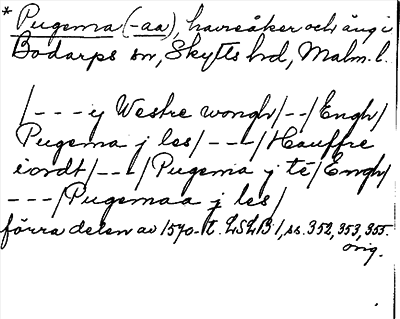 * Pugema (-aa), havreåker och äng i
Bodarps sn, Skytts hd, Malm. l.
/---y Westre wongh/--/Engh/
Pugema j les/---/Hauffre
iordt/---/Pugema y té/Engh/
---/Pugemaa j les/
förra delen av 1570-t. LSLB 1, ss. 352, 353, 355.
orig.